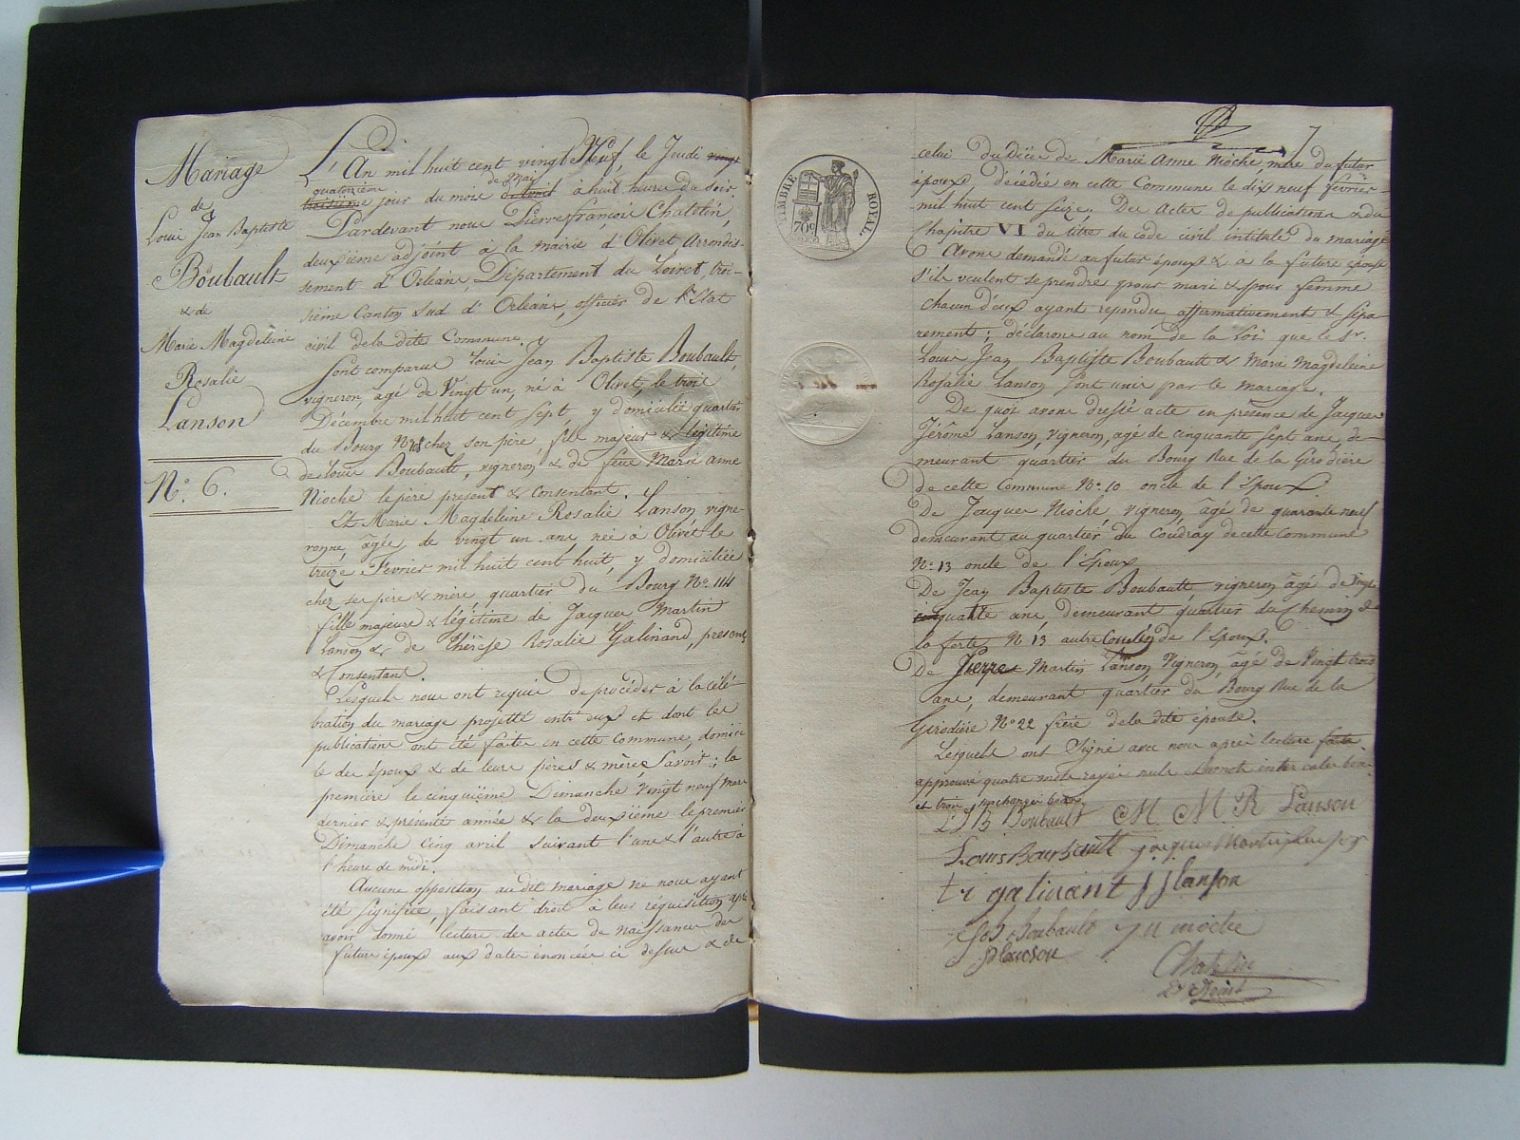 Mariage
de
Louis Jean Baptiste
Boubault
& de
Marie Magdeleine
Rosalie
Lanson
N.º 6.
L'An mil huit cent vingt Neuf, le Jeudi vingt
quatorzième de Mai
treizième jour du mois d'avril à huit heures du soir
Pardevant nous Pierre françois Chatelin,
deuxième adjoint à la mairie d'Olivet Arrondis-
sement d'Orléans, Département du Loiret, troi-
sième Canton Sud d'Orléans, officier de l'Etat
civil de la dite Commune.
Sont comparus Louis Jean Baptiste Boubault,
vigneron, agé de Vingt un, né à Olivet, le trois
Décembre mil huit cent sept, y domicilié quartier
du Bourg Nº chez son père, fils majeur & légitime
de Louis Boubault, vigneron, & de feue Marie anne
Nioche le père présent & Consentant.
Et Marie Magdeleine Rosalie Lanson vigne-
ronne, âgée de vingt un ans née à Olivet le
treize Février mil huit cent huit, y domiciliée
chez ses père & mère quartier du Bourg Nº. 114
fille majeure & légitime de Jacques Martin
Lanson & de Thérèse Rosalie Galinand, présents
& Consentans.
Lesquels nous ont requis de procéder à la célé-
bration du mariage projetté entr'eux et dont les
publications ont été faites en cette Commune, domici
le des époux & de leurs pères & mères Savoir: la
première le cinquième Dimanche Vingt neuf mars
dernier & présente année & la deuxième le premier
Dimanche Cinq avril suivant l'une & l'autre à
l'heure de midi.
Aucune opposition au dit mariage ne nous ayant
été signifiée, faisant droit à leur réquisition, après
avoir donné lecture des actes de naissances des
futurs époux aux dates énoncées ci dessus & de
7
TIMBRE ROYAL
70c
celui du décès de Marie Anne Nioche, mère du futur
époux décédée en cette Commune le dix neuf février
mil huit cent seize. Des Actes de publications & du
Chapitre VI du titre du code civil intitulé du mariage
Avons demandé au futur époux & a la future épouse
s'ils veulent se prendre pour mari & pour femme
chacun d'eux ayant répondu affirmativement & sépa-
rement; déclarons au nom de la Loi que le Sr.
Louis Jean Baptiste Boubault & Marie Magdeleine
Rosalie Lanson sont unis par le mariage.
De quoi avons dressé acte en présence de Jacques
Jérôme Lanson, Vigneron, agé de cinquante sept ans, de-
meurant quartier du Bourg Rue de la Girodière
de cette Commune Nº. 10 oncle de l'Epoux
De Jacques Nioche vigneron âgé de quarante neuf
demeurant au quartier du Coudray de cette commune
Nº. 13 oncle de l'Epoux
De Jean Baptiste Boubault vigneron âgé de
ans, demeurant quartier du Chemin de
la ferté N. 13 autre Cousin de l'Epoux.
De Pierre Martin Lanson Vigneron, âgé de Vingt trois
ans, demeurant quartier du Bourg Rue de la
Girodière Nº 22 frère de la dite épouse.
Lesquels ont Signé avec nous après lecture faite
approuvé quatre mots rayés nuls
et trois
L J B Boubault M M R Lanson
Louis Boubault jacques Martin lanson
t r galinant j j lanson
J B Boubault J N nioche
p lanson
Chatelin
Adjoint